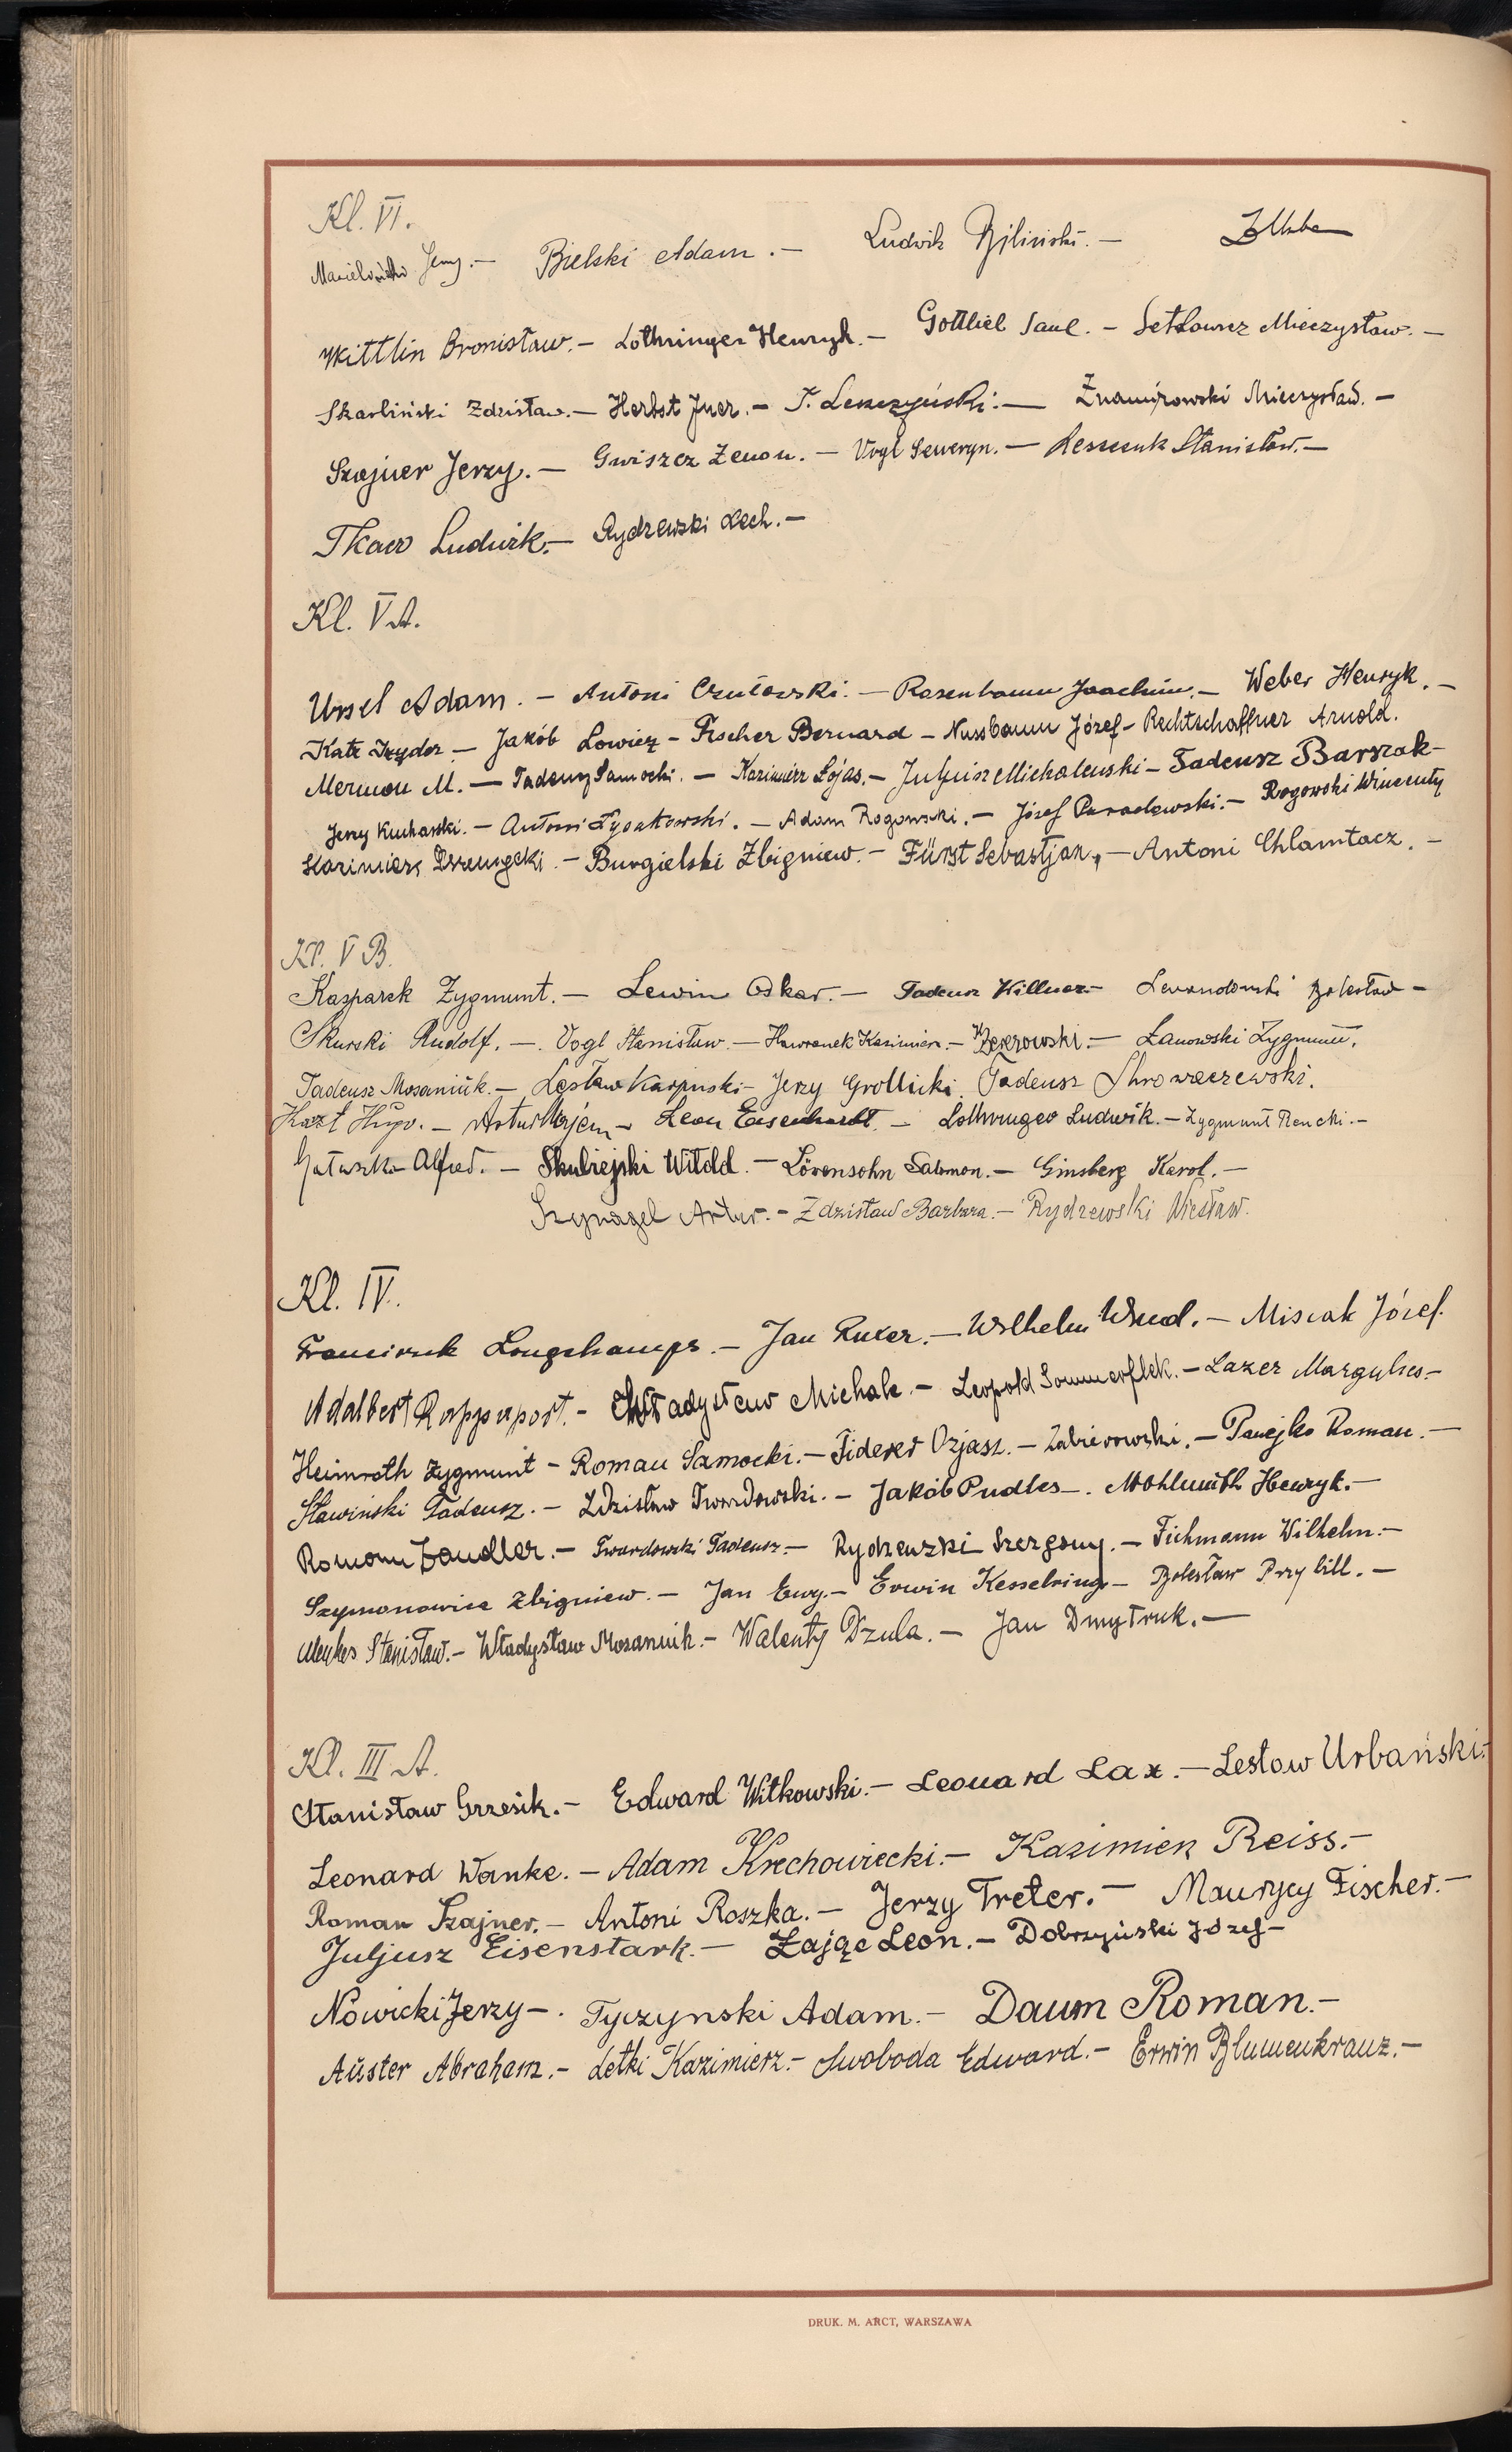 Kl. VI.
Jerzy.— Bielski Adam.— Ludwik Biliński.—
Wittlin Bronisław.— Lothringer Henryk.— Gottlieb Saul.— Setkowicz Mieczysław.—
Skarliński Zdzisław.— Herbst Juer.— J. Leszczyński.— Żnamirowski Mieczysław.—
Szajner Jerzy.— Gwiszcz Zenon.— Vogl Seweryn.— Leszczuk Stanisław.—
Tkacz Ludwik.— Rydzewski Lech.—
Kl. V A.
Ursel Adam.— Antoni Czułowski.— Rosenbaum Joachim.— Weber Henryk.—
Katz Izydor — Jakób Lowicz — Fischer Bernard — Nussbaum Józef — Rechtschaffner Arnold.
Mermon M.— Tadeusz Samocki.— Kazimierz Łojas.— Juljusz Michalewski — Tadeusz Barszak —
Jerzy Kucharski.— Antoni Łysakowski.— Adam Rogowski.— Józef Paradowski.— Rogowski Wincenty
Kazimierz — Burgielski Zbigniew.— Fürst Sebastjan.— Antoni Chlamtacz.—
Kl. V B.
Kasparek Zygmunt.— Lewin Oskar.— Tadeusz Willner — Lewandowski Bolesław —
Skurski Rudolf.— Vogl Stanisław.— Hawranek Kazimierz.— — Łanowski Zygmunt.
Tadeusz Mosaniuk.— Lesław Karpinski — Jerzy Grollicki. Tadeusz Skrowaczewski.
— Artur — Leon Eisenhardt.— Lothringer Ludwik.— Zygmunt Rencki.—
Alfred.— Skubiejski Witold.— Lövensohn Salomon.— Ginsberg Karol.—
Szynagel Artur.— Zdzisław Barbara.— Rydzewski Wiesław.
Kl. IV.
Franciszek Longchamps.— Jan Rucker.— Wilhelm Wind.— Misiak Józef.
Adalbert Rappaport.— Władysław Michale.— Leopold Sommerflek.— Lazer Margulies —
Heimroth Zygmunt — Roman Samocki.— Fiderer Ozjasz.— Zabierowski.— Panejko Roman.—
Sławiński Tadeusz.— Zdzisław Twardowski.— Jakób Pudles —. Mohlmuth Henryk.—
Roman Zandler.— Twardowski Tadeusz.— Rydzewski Szczęsny.— Fichmann Wilhelm.—
Szymonowicz Zbigniew.— Jan Ewy.— Erwin Kesselring — Bolesław Przybill.—
Menkes Stanisław.— Władysław Mosaniuk.— Walenty Dzula.— Jan Dmytruk.—
Kl. III A.
Stanisław Grzesik.— Edward Witkowski.— Leonard Lax.— Lesław Urbański.—
Leonard Wanke.— Adam Krechowiecki.— Kazimierz Reiss.—
Roman Szajner.— Antoni Roszka.— Jerzy Treter.— Maurycy Fischer.—
Juljusz Eisenstark.— Zając Leon.— Dobrzyński Józef —
Nowicki Jerzy —. Tyczynski Adam.— Daum Roman.—
Auster Abraham.— Letki Kazimierz.— Swoboda Edward.— Erwin Blumenkranz.—
DRUK. M. ARCT, WARSZAWA